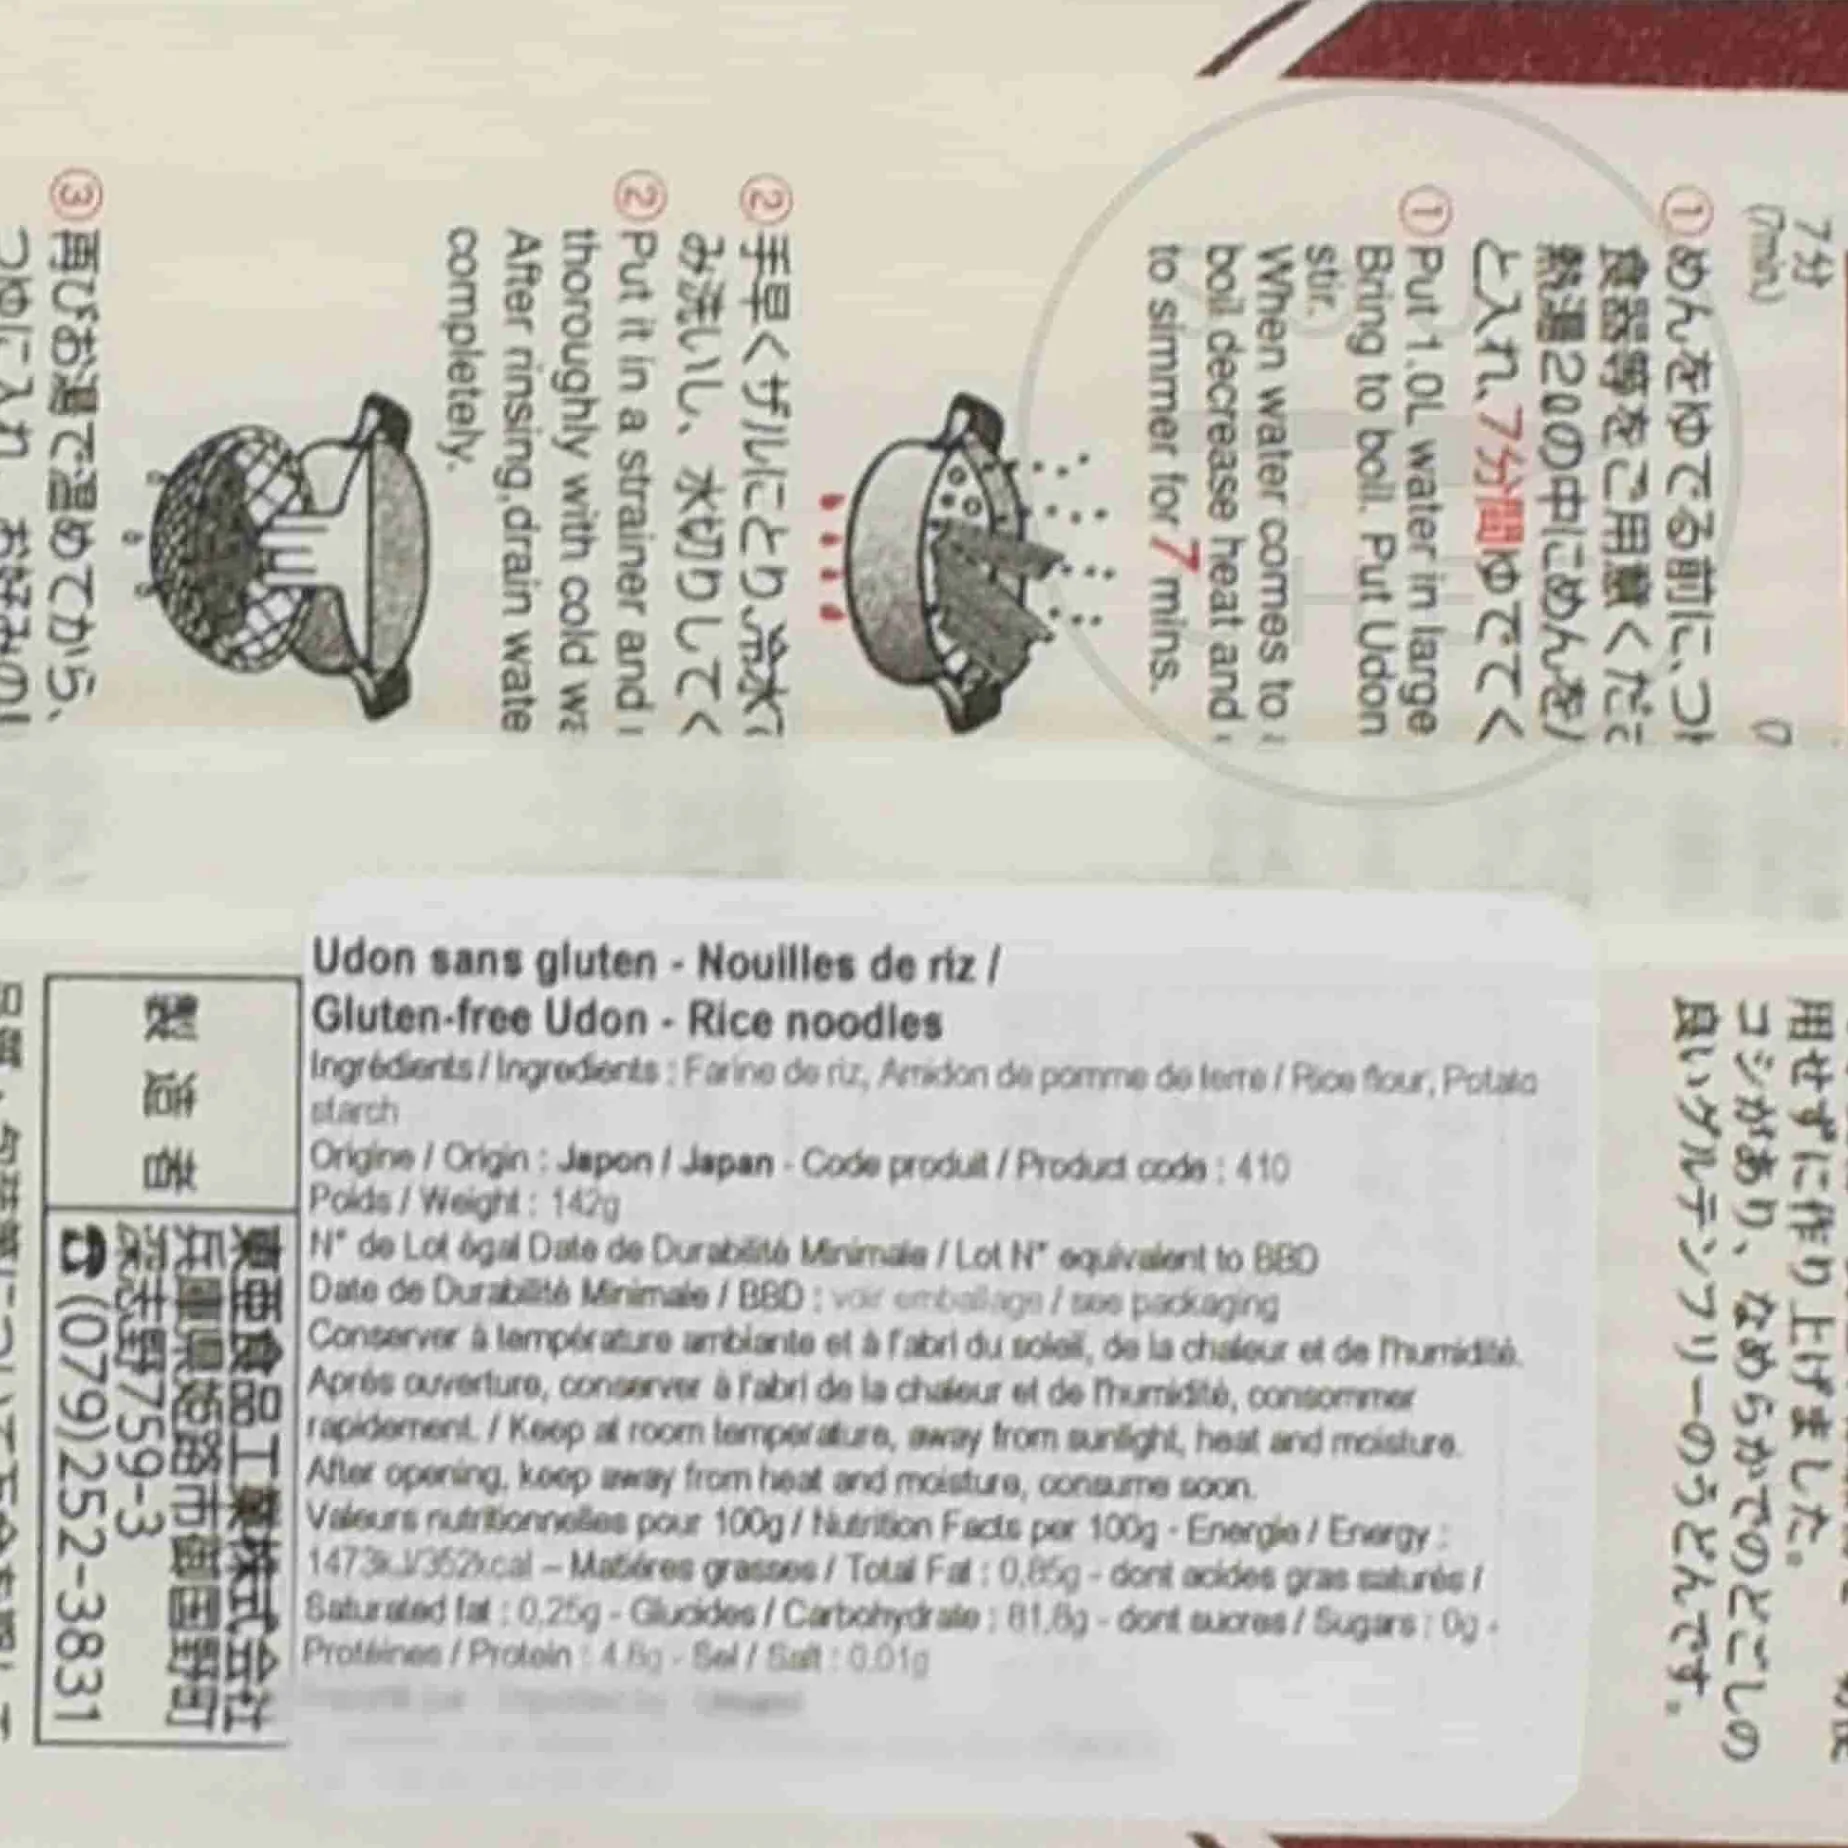 7分
(7min)
①めんをゆでる前に、つ
食器等をご用意くだ
熱湯2ℓの中にめんを
と入れ、7分間ゆでてく
①Put 1.0L water in large
Bring to boil. Put Udon
stir.
When water comes to
boil decrease heat and
to simmer for 7 mins.
②手早くザルにとり、冷水
み洗いし、水切りしてく
②Put it in a strainer and
thoroughly with cold
After rinsing,drain wate
completely.
③再びお湯で温めてから、
つゆに入れ、お好みの
用せずに作り上げました。
コシがあり、なめらかでのどごしの
良いグルテンフリーのうどんです。
Udon sans gluten - Nouilles de riz /
Gluten-free Udon - Rice noodles
Ingrédients / Ingredients : Farine de riz, Amidon de pomme de terre / Rice flour, Potato
starch
Origine / Origin : Japon / Japan - Code produit / Product code : 410
Poids / Weight : 142g
N° de Lot égal Date de Durabilité Minimale / Lot N° equivalent to BBD
Date de Durabilité Minimale / BBD : voir emballage / see packaging
Conserver à température ambiante et à l'abri du soleil, de la chaleur et de l'humidité.
Après ouverture, conserver à l'abri de la chaleur et de l'humidité, consommer
rapidement. / Keep at room temperature, away from sunlight, heat and moisture.
After opening, keep away from heat and moisture, consume soon.
Valeurs nutritionnelles pour 100g / Nutrition Facts per 100g - Energie / Energy :
1473kJ/352kcal – Matières grasses / Total Fat : 0,85g - dont acides gras saturés /
Saturated fat : 0,25g - Glucides / Carbohydrate : 81,8g - dont sucres / Sugars : 0g -
Protéines / Protein : 4.8g - Sel / Salt : 0.01g
製造者
東亜食品工業株式会社
兵庫県姫路市御国野町
深志野759-3
☎(079)252-3831